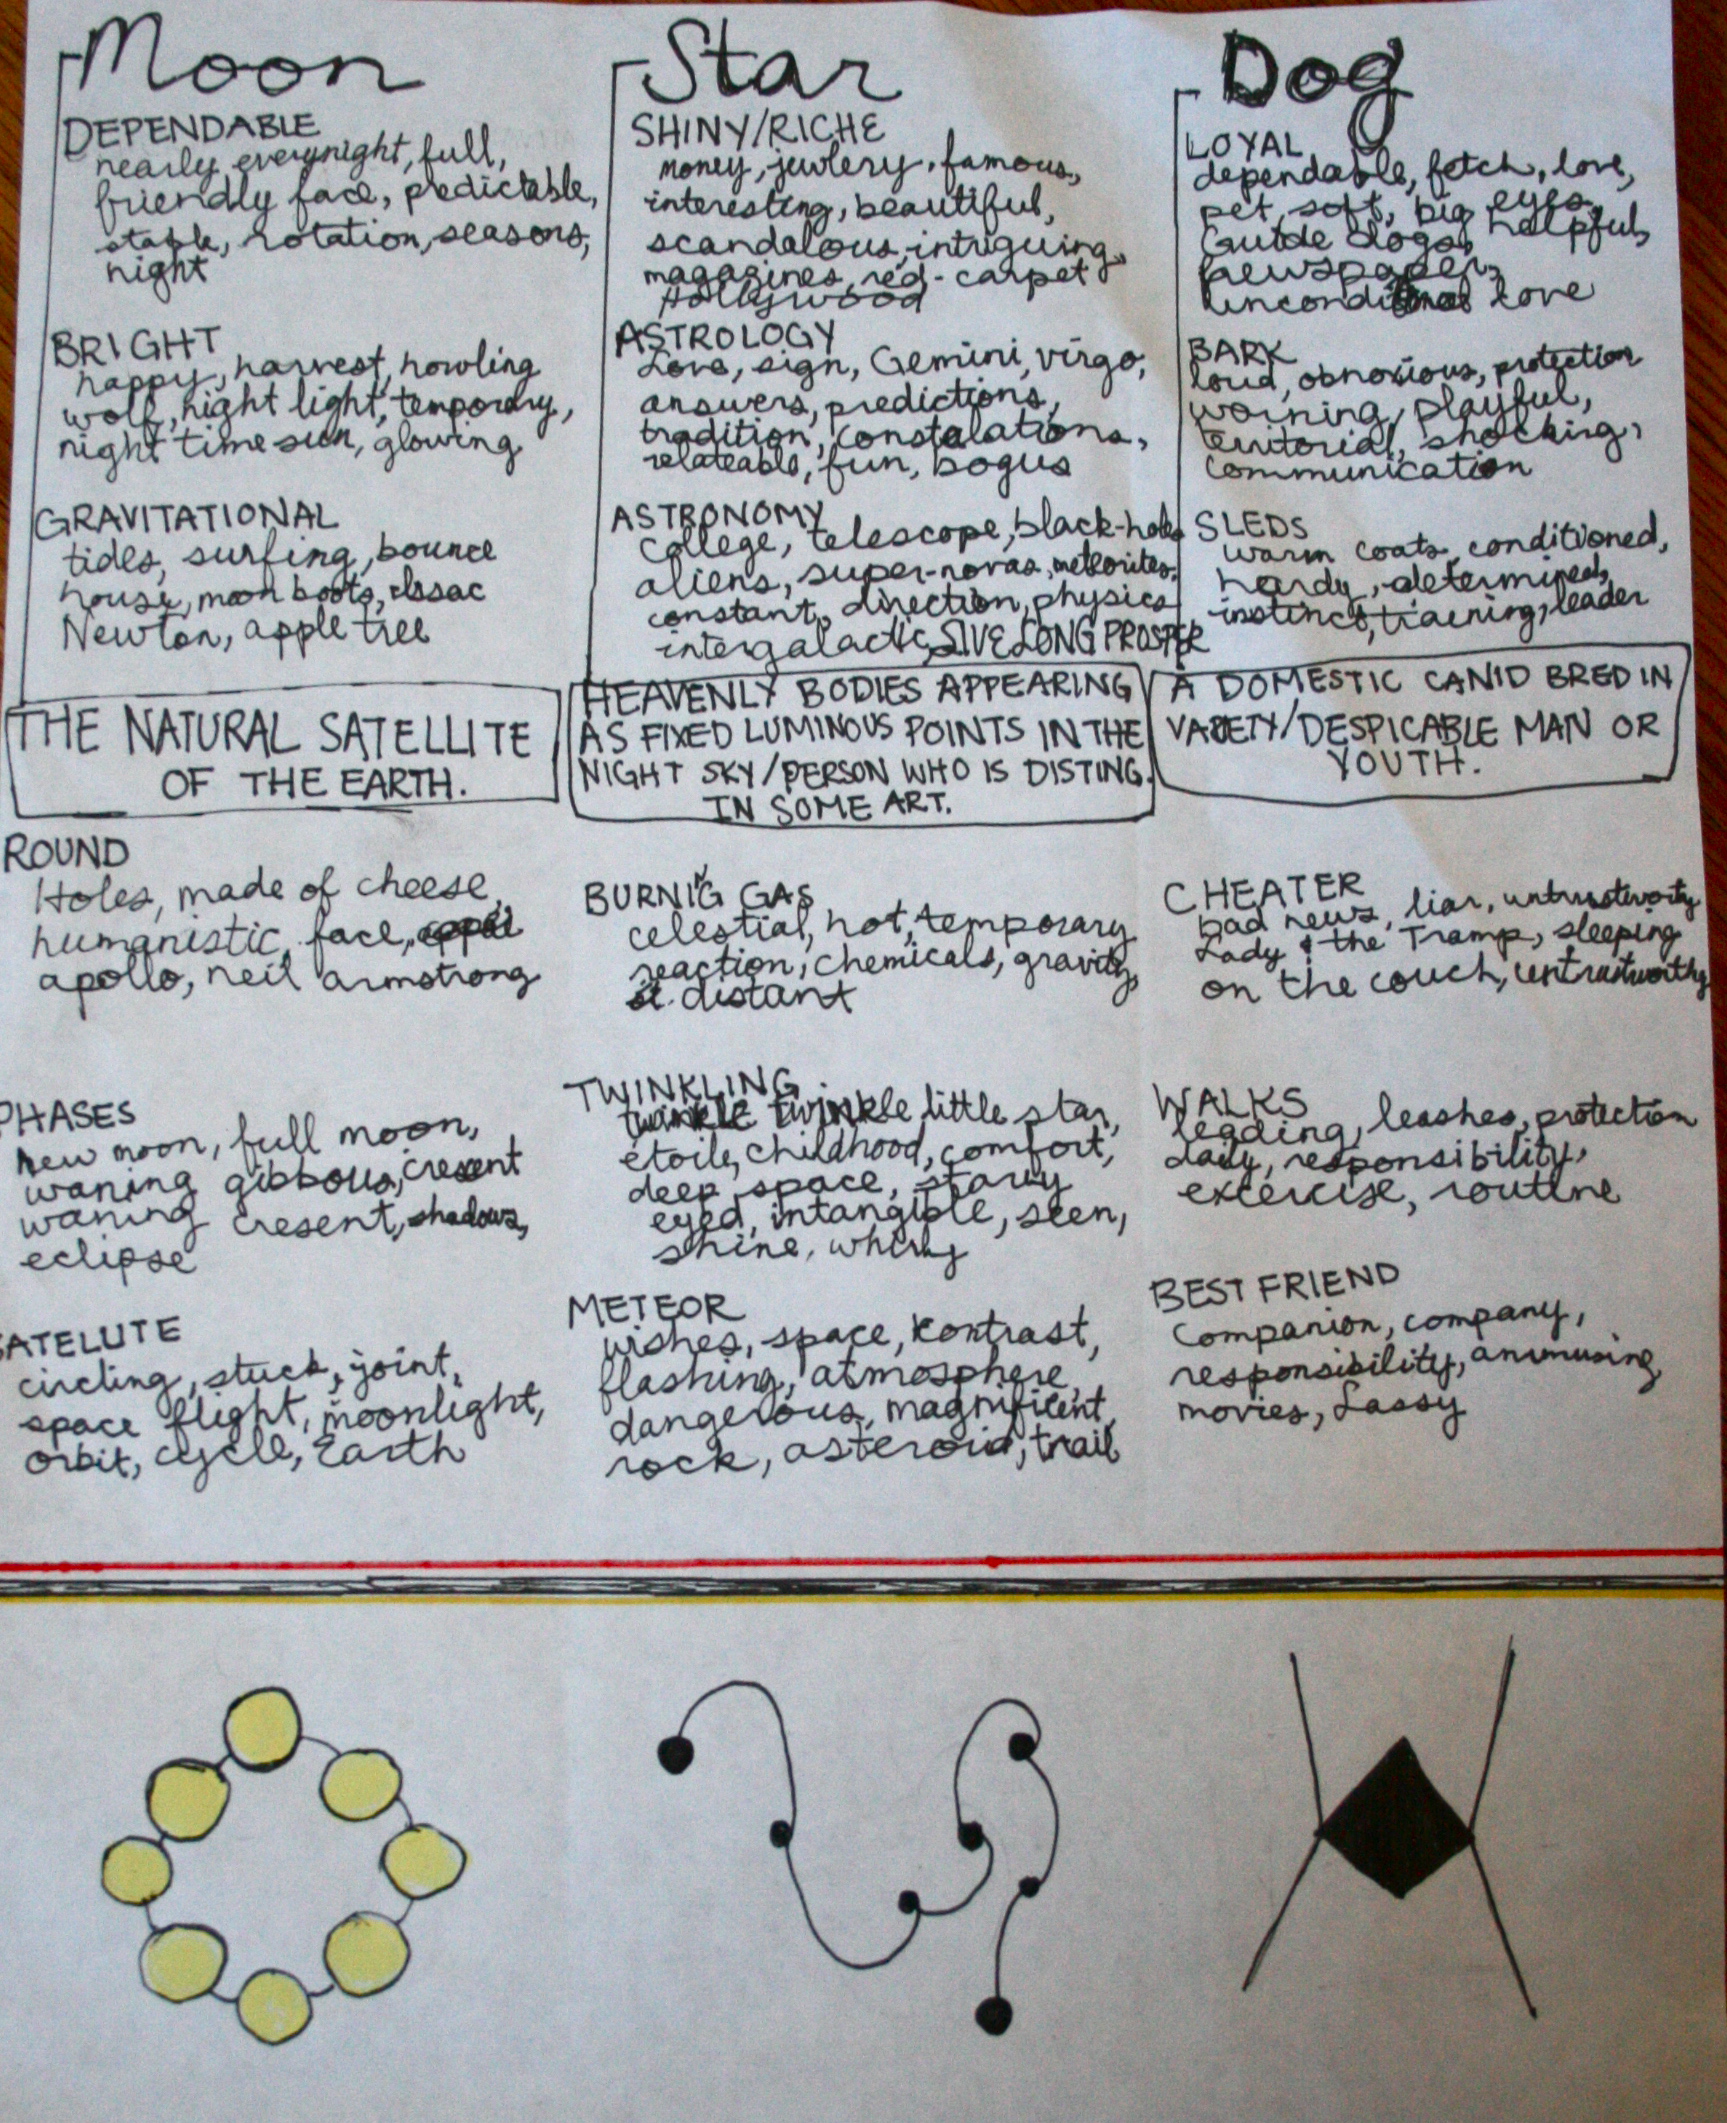 Moon
DEPENDABLE
nearly everynight, full,
friendly face, predictable,
stable, rotation, seasons,
night
BRIGHT
happy, harvest, howling
wolf, night light, temporary,
night time sun, glowing
GRAVITATIONAL
tides, surfing, bounce
house, moon boots, Issac
Newton, apple tree
THE NATURAL SATELLITE
OF THE EARTH.
ROUND
Holes, made of cheese,
humanistic, face,
apollo, neil armstrong
PHASES
new moon, full moon,
waning gibbous, cresent
waning cresent, shadows,
eclipse
SATELLITE
circling, stuck, joint,
space flight, moonlight,
orbit, cycle, Earth
Star
SHINY/RICHE
money, jewlery, famous,
interesting, beautiful,
scandalous, intriguing,
magazines, red-carpet
Hollywood
ASTROLOGY
Love, sign, Gemini, virgo,
answers, predictions,
tradition, constalations,
relateable, fun, bogus
ASTRONOMY
college, telescope, black-holes
aliens, super-novas, meteorites,
constant, direction, physics
intergalactic, LIVE LONG PROSPER
HEAVENLY BODIES APPEARING
AS FIXED LUMINOUS POINTS IN THE
NIGHT SKY/PERSON WHO IS DISTING.
IN SOME ART.
BURNIG GAS
celestial, hot, temporary
reaction, chemicals, gravity,
distant
TWINKLING
twinkle twinkle little star,
étoile, childhood, comfort,
deep space, starry
eyed, intangible, seen,
shine,
METEOR
wishes, space, contrast,
flashing, atmosphere,
dangerous, magnificent,
rock, asteroid, trail
Dog
LOYAL
dependable, fetch, love,
pet, soft, big eyes,
Guide dogs, helpful,
newspaper,
unconditional love
BARK
loud, obnoxious, protection
warning, playful,
territorial, shocking,
communication
SLEDS
warm coats, conditioned,
hardy, determined,
instinct, training, leader
A DOMESTIC CANID BRED IN
VARIETY/DESPICABLE MAN OR
YOUTH.
CHEATER
bad news, liar, untrustworty
Lady & the Tramp, sleeping
on the couch, untrustworthy
WALKS
leading, leashes, protection
daily, responsibility,
excercise, routine
BEST FRIEND
Companion, company,
responsibility, anumusing,
movies, Lassy